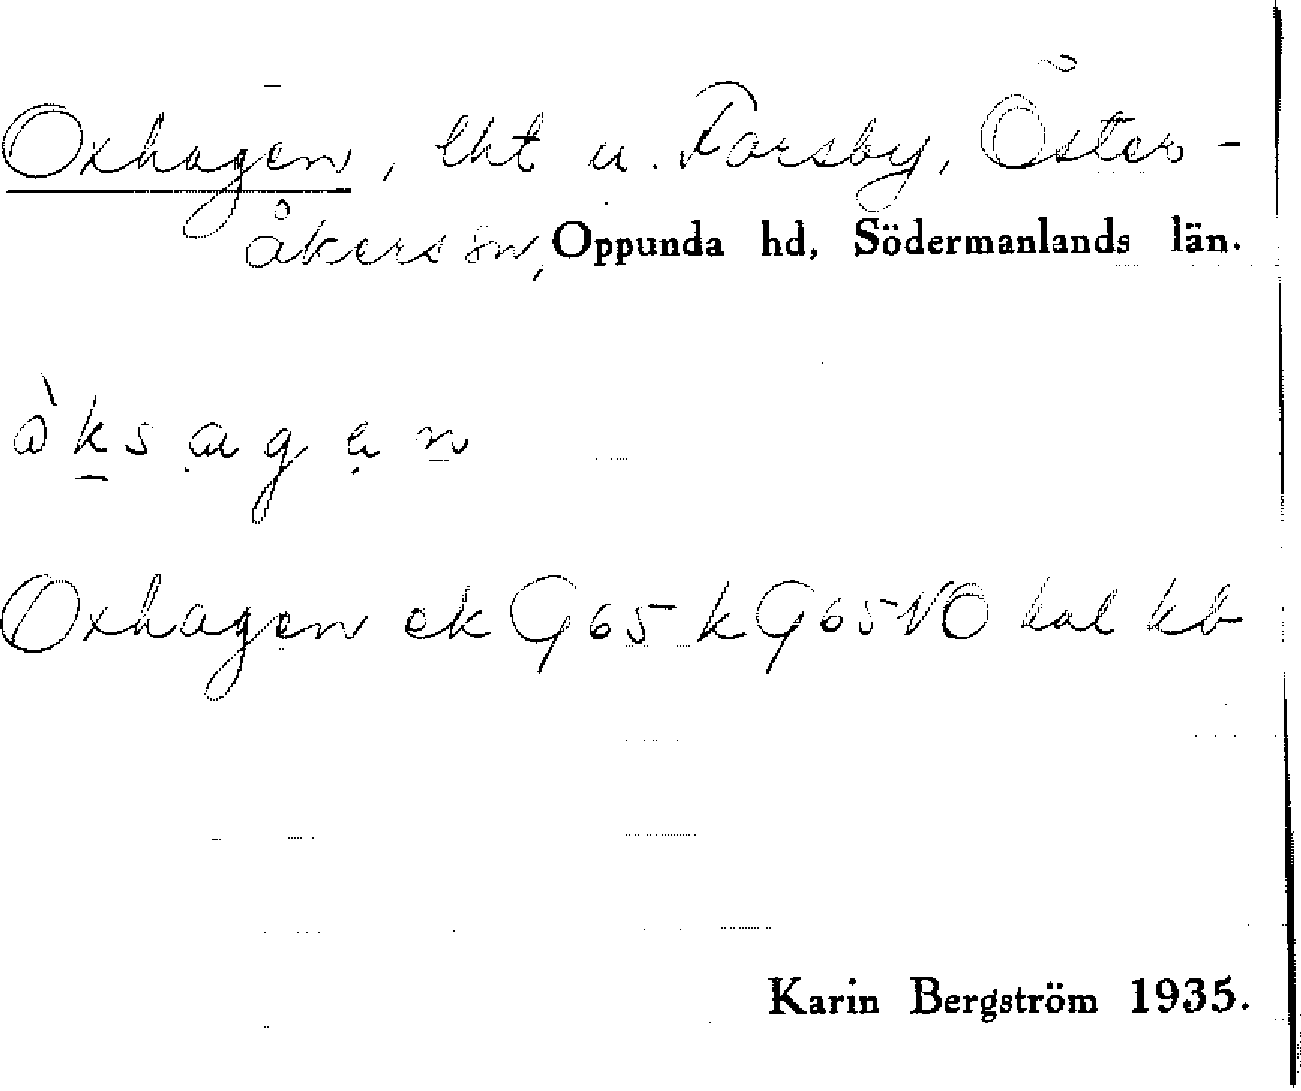 Oxhagen, lht u. Forsby, Öster-
åkers sn, Oppunda hd, Södermanlands län.
Oxhagen ek G65 k G65NO hal kb
Karin Bergström 1935.